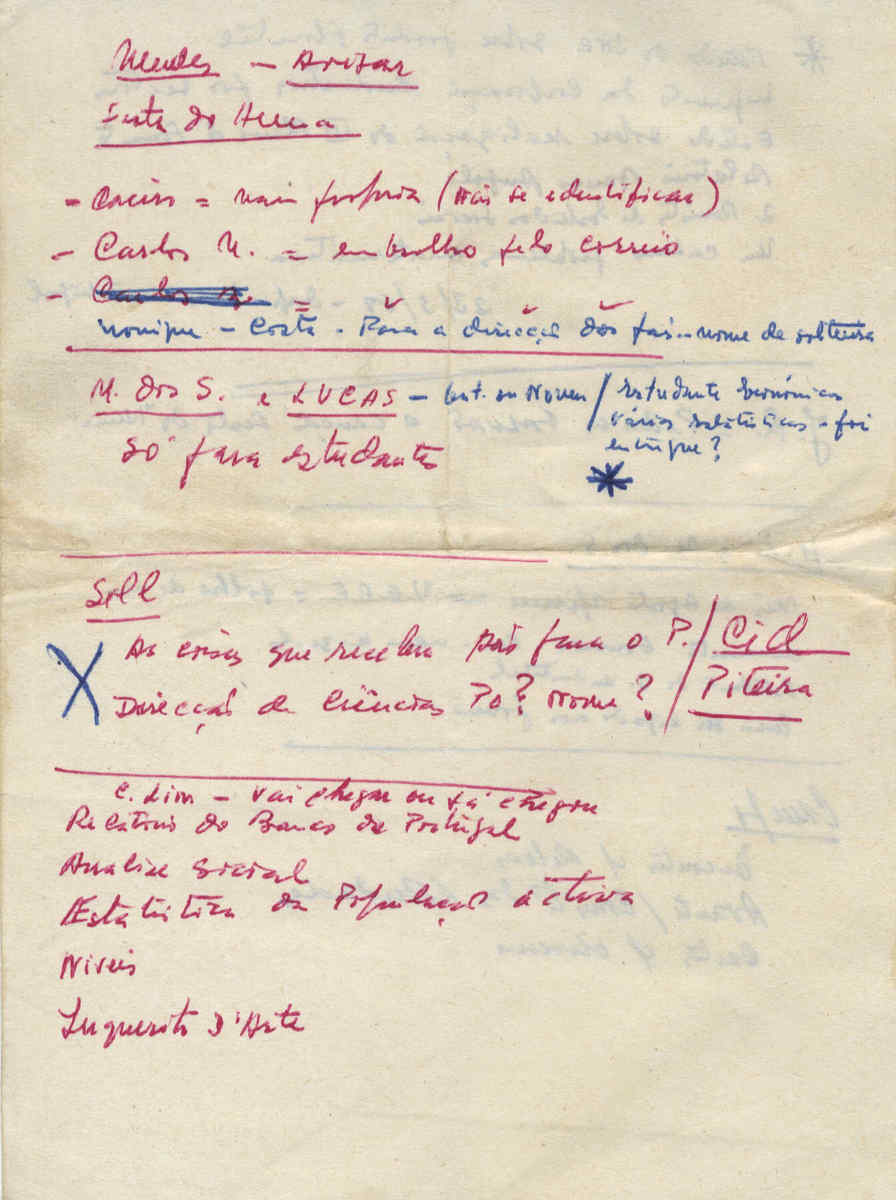 Mendes — Avisar
Festa do Helena
- = vai (não se edentificar)
- Carlos M. = embrulho pelo correio
- Carlos M. =
Monique - Costa - Para a direcção dos pais - nome de solteira
M. dos S. e LUCAS - Out. ou Novem / estudante económicas
várias estatísticas - foi
entregue?
Só para estudantes
Sell
As coisas que receba são para o P. / Cid
Direcção de Ciências Po? Nome? / Piteira
C. Lion - vai chegar ou já chegou
Relatório do Banco de Portugal
Analise Social
Estatística da População activa
Niveis
Inquerito d'Arte